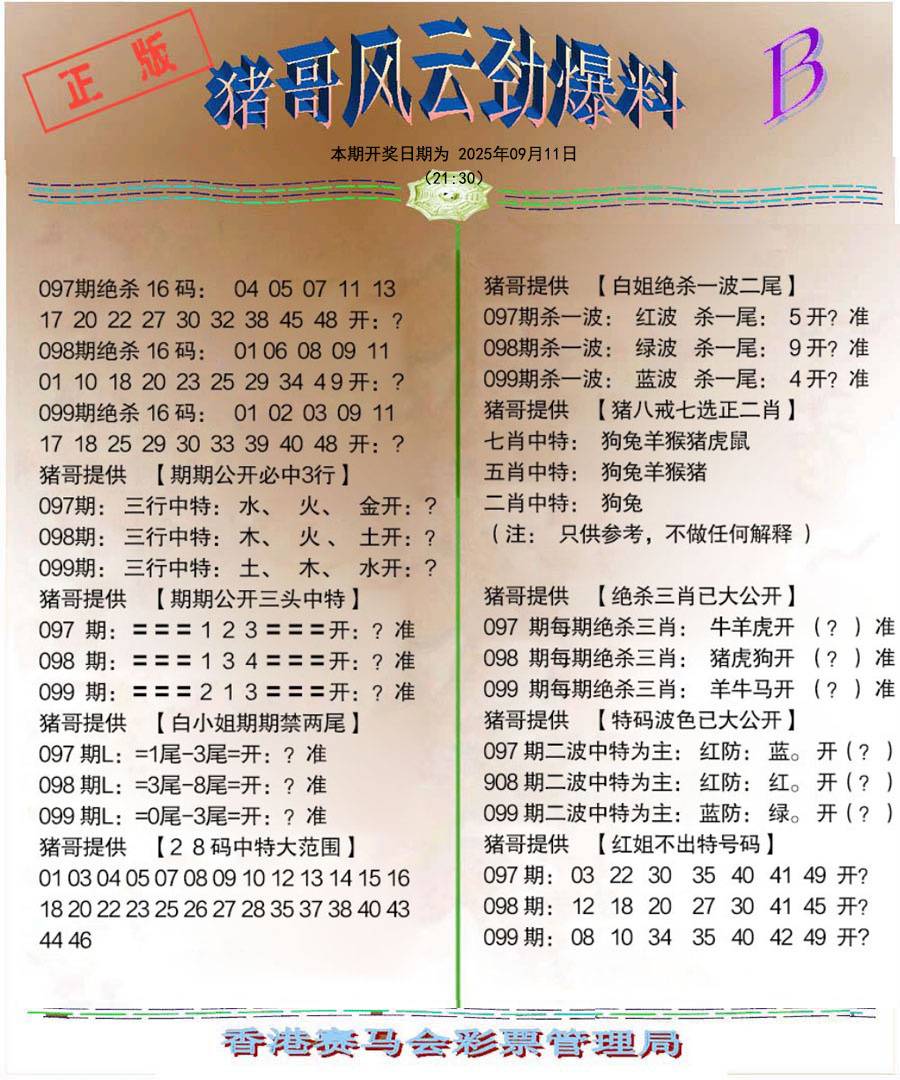 正版
猪哥风云劲爆料
B
本期开奖日期为 2025年09月11日
（21:30）
097期绝杀16码： 04 05 07 11 13
17 20 22 27 30 32 38 45 48 开：?
098期绝杀16码： 01 06 08 09 11
01 10 18 20 23 25 29 34 49开：?
099期绝杀16码： 01 02 03 09 11
17 18 25 29 30 33 39 40 48 开：?
猪哥提供 【期期公开必中3行】
097期：三行中特：水、 火、 金开：?
098期：三行中特：木、 火、 土开：?
099期：三行中特：土、 木、 水开：?
猪哥提供 【期期公开三头中特】
097 期：＝＝＝１２３＝＝＝开：? 准
098 期：＝＝＝１３４＝＝＝开：? 准
099 期：＝＝＝２１３＝＝＝开：? 准
猪哥提供 【白小姐期期禁两尾】
097期L：=1尾-3尾=开：? 准
098期L：=3尾-8尾=开：? 准
099期L：=0尾-3尾=开：? 准
猪哥提供 【２８码中特大范围】
01 03 04 05 07 08 09 10 12 13 14 15 16
18 20 22 23 25 26 27 28 35 37 38 40 43
44 46
猪哥提供 【白姐绝杀一波二尾】
097期杀一波： 红波 杀一尾： 5开? 准
098期杀一波： 绿波 杀一尾： 9开? 准
099期杀一波： 蓝波 杀一尾： 4开? 准
猪哥提供 【猪八戒七选正二肖】
七肖中特： 狗兔羊猴猪虎鼠
五肖中特： 狗兔羊猴猪
二肖中特： 狗兔
（注： 只供参考，不做任何解释 ）
猪哥提供 【绝杀三肖已大公开】
097 期每期绝杀三肖： 牛羊虎开 （? ）准
098 期每期绝杀三肖： 猪虎狗开 （? ）准
099 期每期绝杀三肖： 羊牛马开 （? ）准
猪哥提供 【特码波色已大公开】
097期二波中特为主：红防：蓝。开（? ）
908期二波中特为主：红防：红。开（? ）
099期二波中特为主：蓝防：绿。开（? ）
猪哥提供 【红姐不出特号码】
097期： 03 22 30 35 40 41 49 开?
098期： 12 18 20 27 30 41 45 开?
099期： 08 10 34 35 40 42 49 开?
香港赛马会彩票管理局